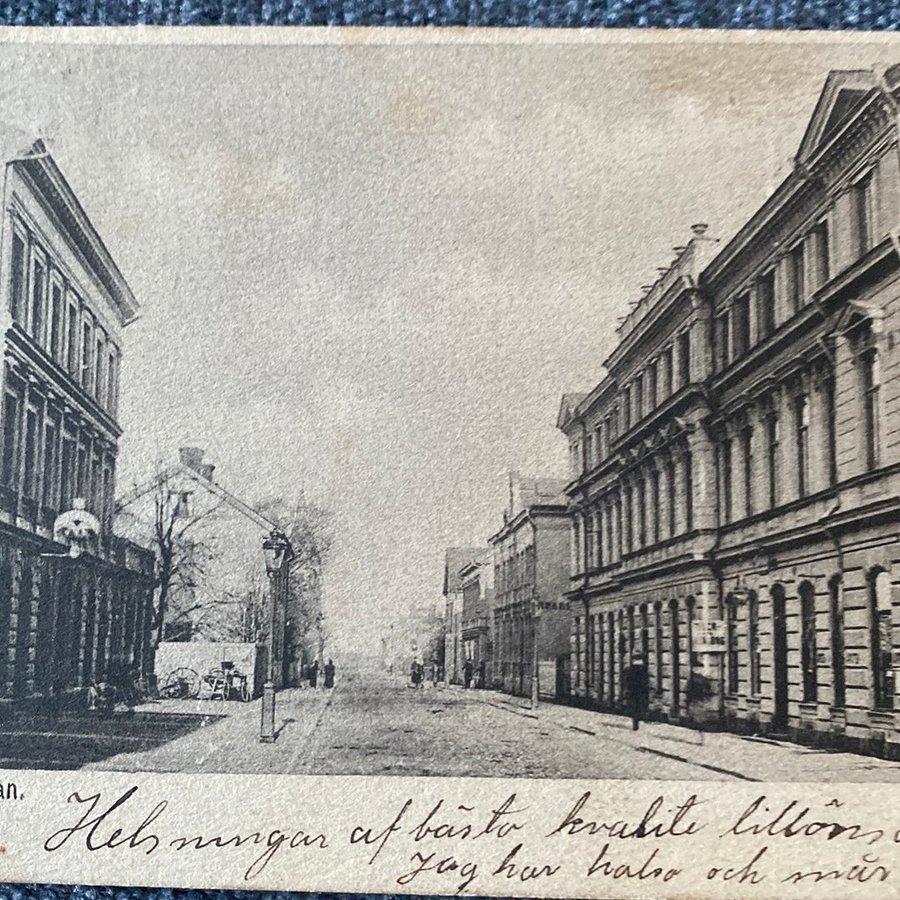 an.
Helsningar af bästa kvalite tillöns
Jag har halsa och mår